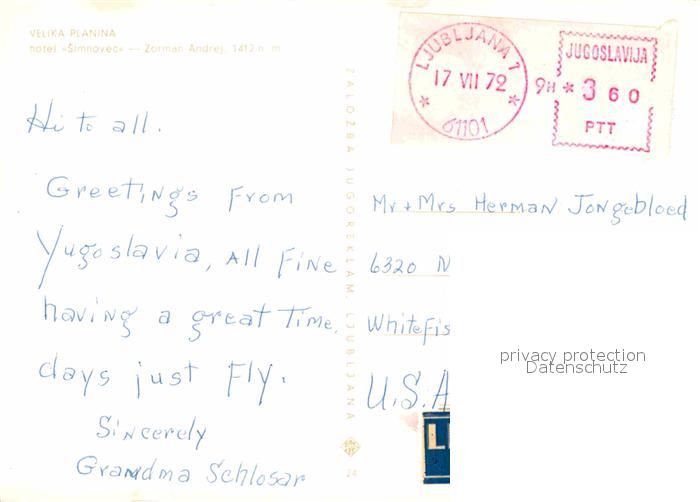 VELIKA PLANINA
hotel »Šimnovec« — Zorman Andrej, 1412 n. m.
Hi to all.
Greetings From
Yugoslavia, All Fine
having a great Time,
days just Fly.
Sincerely
Grandma Schlosar
ZALOŽBA JUGOREKLAM, LJUBLJANA
24
LJUBLJANA 7
17 VII 72
9H
61101
JUGOSLAVIJA
* 3 60
PTT
Mr + Mrs Herman Jongebloed
6320 N
Whitefis
U.S.A
privacy protection
Datenschutz